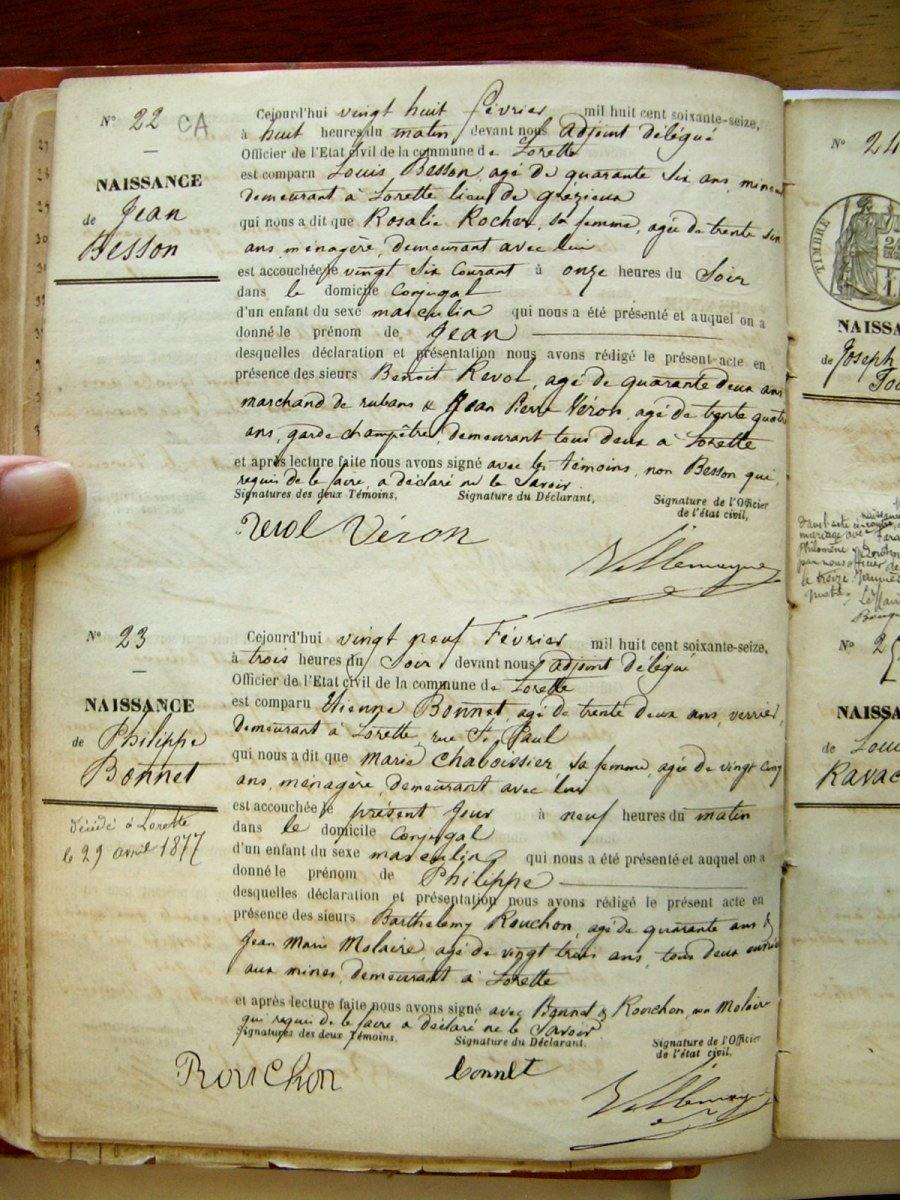 N° 22 CA
NAISSANCE
de Jean
Besson
Cejourd'hui vingt huit Février mil huit cent soixante-seize,
à huit heures du matin devant nous Adjoint délégué
Officier de l'Etat civil de la commune de Lorette
est comparu Louis Besson, agé de quarante six ans, mineur
demeurant à Lorette lieu de grézieux
qui nous a dit que Rosalie Rocher, sa femme, agée de trente six
ans, ménagère, demeurant avec lui
est accouchée le vingt six Courant à onze heures du Soir
dans le domicile Conjugal
d'un enfant du sexe masculin qui nous a été présenté et auquel on a
donné le prénom de Jean
desquelles déclaration et présentation nous avons rédigé le présent acte en
présence des sieurs Benoit Revol, agé de quarante deux ans
marchand de rubans & Jean Pierre Véron, agé de trente quatre
ans, garde champêtre, demeurant tous deux à Lorette
et après lecture faite nous avons signé avec les témoins, non Besson qui,
requis de le faire, a déclaré ne le Savoir.
Signatures des deux Témoins, Signature du Déclarant, Signature de l'Officier
de l'état civil,
Revol Véron
N° 23
NAISSANCE
de Philippe
Bonnet
Décédé à Lorette
le 29 avril 1877
Cejourd'hui vingt neuf Février mil huit cent soixante-seize,
à trois heures du Soir devant nous adjoint délégué
Officier de l'Etat civil de la commune de Lorette
est comparu Etienne Bonnet, agé de trente deux ans, verrier,
demeurant à Lorette, rue St Paul
qui nous a dit que Marie Chaboissier, sa femme, agée de vingt cinq
ans, ménagère, demeurant avec lui
est accouchée le présent Jour à neuf heures du matin
dans le domicile Conjugal
d'un enfant du sexe masculin qui nous a été présenté et auquel on a
donné le prénom de Philippe
desquelles déclaration et présentation nous avons rédigé le présent acte en
présence des sieurs Barthelemy Rouchon, agé de quarante ans &
Jean Marie Molaire, agé de vingt trois ans, tous deux ouvriers
aux mines, demeurant à Lorette
et après lecture faite nous avons signé avec Bonnet & Rouchon, non Molaire
qui requis de le faire a déclaré ne le Savoir
Signatures des deux Témoins, Signature du Déclarant, Signature de l'Officier
de l'état civil,
Rouchon bonnet
N° 24
TIMBRE
NAISSA
de Joseph
mariage avec
Philomène
par nous officier de
le treize Janvier
N° 2
NAISSA
de Loui
Ravac